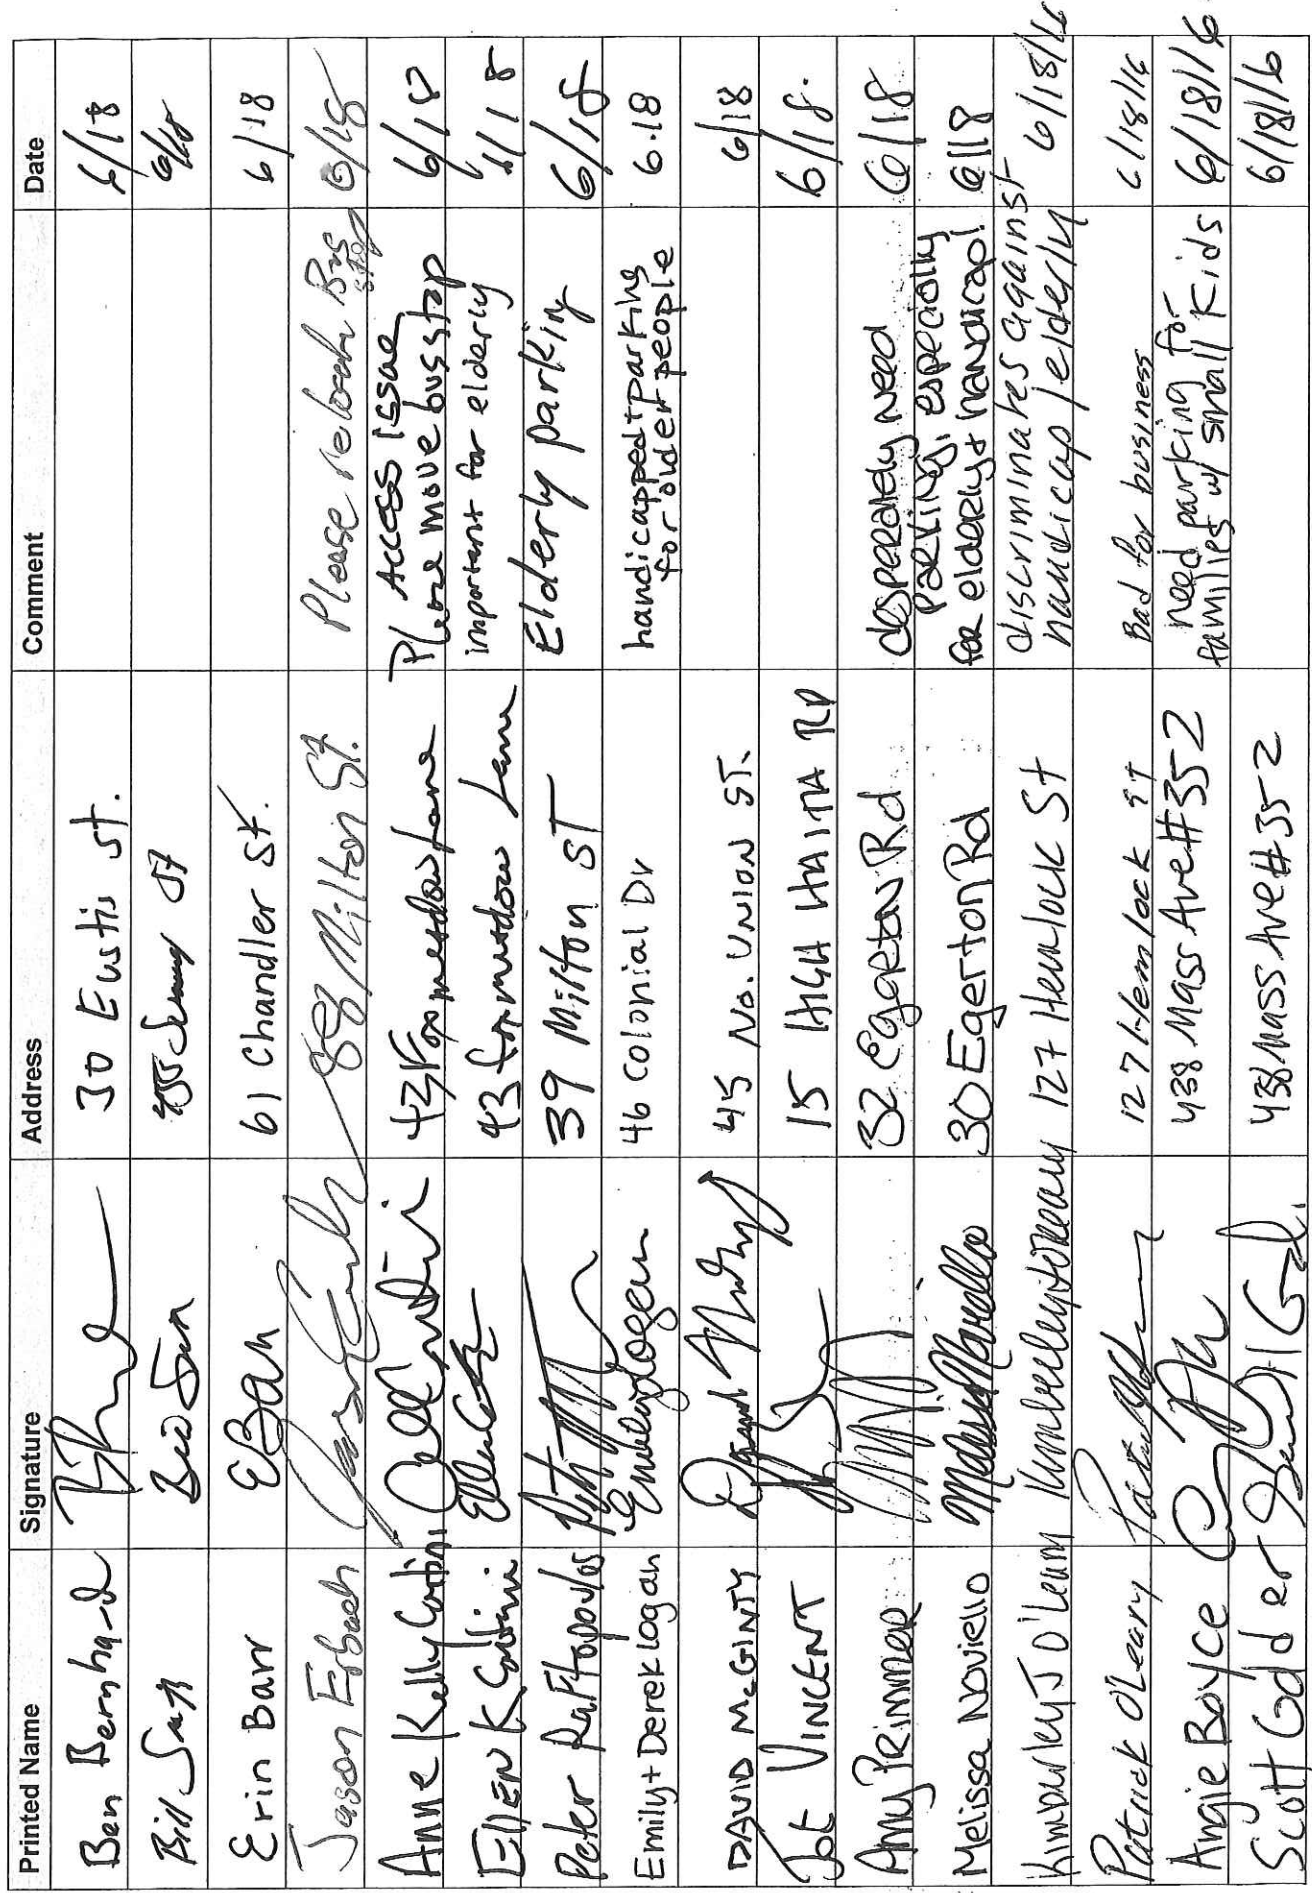 Printed Name Signature Address Comment Date
Ben Bernhard 30 Eustis St. 6/18
Bill 6/18
Erin Barr EBarr 61 Chandler St. 6/18
Jason Erbach 88 Milton St. Please relocate Bus stop 6/18
Anne Kelly Contini 43 Foxmeadow Lane Access Issue
Please move bus stop 6/18
Ellen K Contini 43 foxmeadow Lane important for elderly 6/18
Peter Raftopoulos 39 Milton ST Elderly parking 6/18
Emily + Derek logan Emily Logan 46 Colonial Dr handicapped + parking
for older people 6.18
DAVID McGINTY 45 No. UNION ST. 6/18
JOE VINCENT 15 HIGH HAITH RD 6/18.
Amy PRIMMER 32 Egerton Rd desperately need 6/18
Melissa NOVIELLO Melissa Noviello 30 Egerton Rd parking, especially
for elderly + handicap! 6/18
Kimberley J O'Leary Kimberley J O'Leary 127 Hemlock St discriminates against
handicap/elderly 6/18/16
Patrick O'Leary 127 Hemlock St Bad for business 6/18/16
Angie Boyce 438 Mass Ave #352 need parking for
families w/ small kids 6/18/16
Scott Godder 438 Mass Ave #352 6/18/16